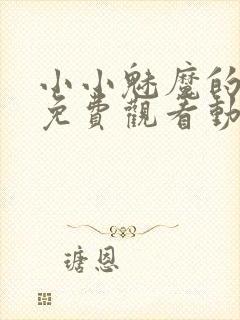 小小魅魔的
免費觀看動
瑭恩